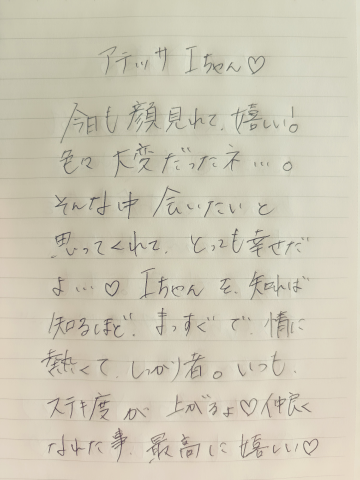 アテッサ Iちゃん♡
今日も顔見れて、嬉しい!。
色々 大変だったネ…。
そんな中 会いたいと
思ってくれて、とっても幸せだ
よ…♡ Iちゃんを、知れば
知るほど、まっすぐで、情に
熱くて、しっかり者。いつも、
ステキ度が 上がるよ♡仲良く
なれた事、最高に嬉しい♡